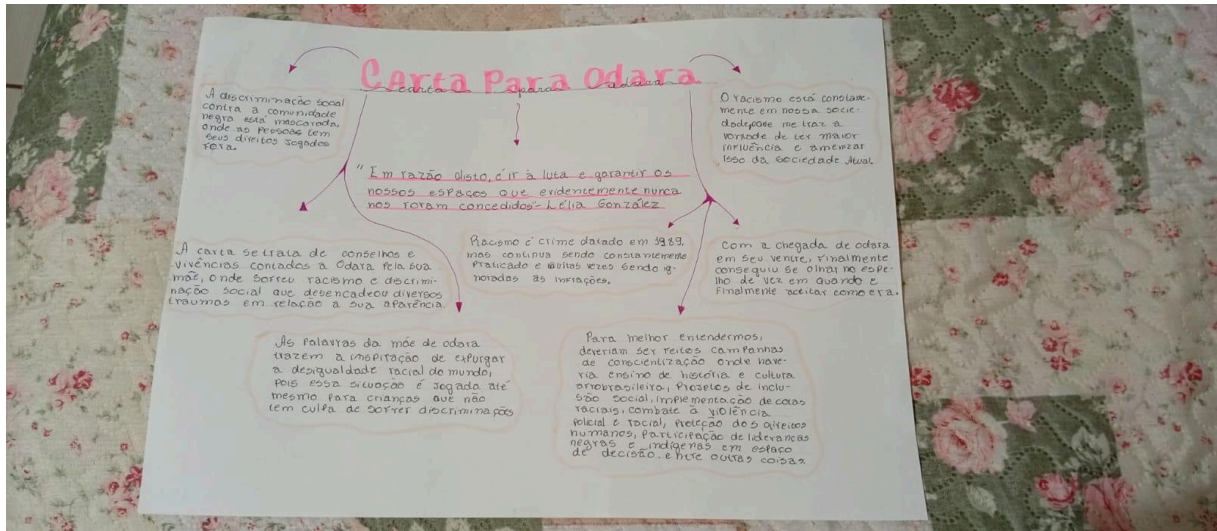 Carta Para Odara
carta para odara
A discriminação social
contra a comunidade
negra está mascarada,
onde as pessoas tem
seus direitos jogados
fora.
O racismo está constante-
mente em nossa socie-
me traz a
vontade de ter maior
influência e amenizar
isso da sociedade Atual
"Em razão disto, é ir à luta e garantir os
nossos espaços que evidentemente nunca
nos foram concedidos"- Lélia González
A carta se trata de conselhos e
vivências contados a Odara pela sua
mãe, onde sofreu racismo e discrimi-
nação social que desencadeou diversos
traumas em relação a sua aparência.
Racismo é crime datado em 1989,
mas continua sendo constantemente
praticado e muitas vezes sendo ig-
noradas as infrações.
Com a chegada de odara
em seu ventre, finalmente
conseguiu se olhar no espe-
lho de vez em quando e
finalmente aceitar como era.
As palavras da mãe de odara
trazem a inspiração de expurgar
a desigualdade racial do mundo,
pois essa situação é jogada até
mesmo para crianças que não
tem culpa de sofrer discriminações
Para melhor entendermos,
deveriam ser feitos campanhas
de conscientização onde have-
ria ensino de história e cultura
afrobrasileira, Projetos de inclu-
são social, implementação de cotas
raciais, combate à violência
policial e racial, proteção dos direitos
humanos, participação de lideranças
negras e indígenas em espaço
de decisão. entre outras coisas.